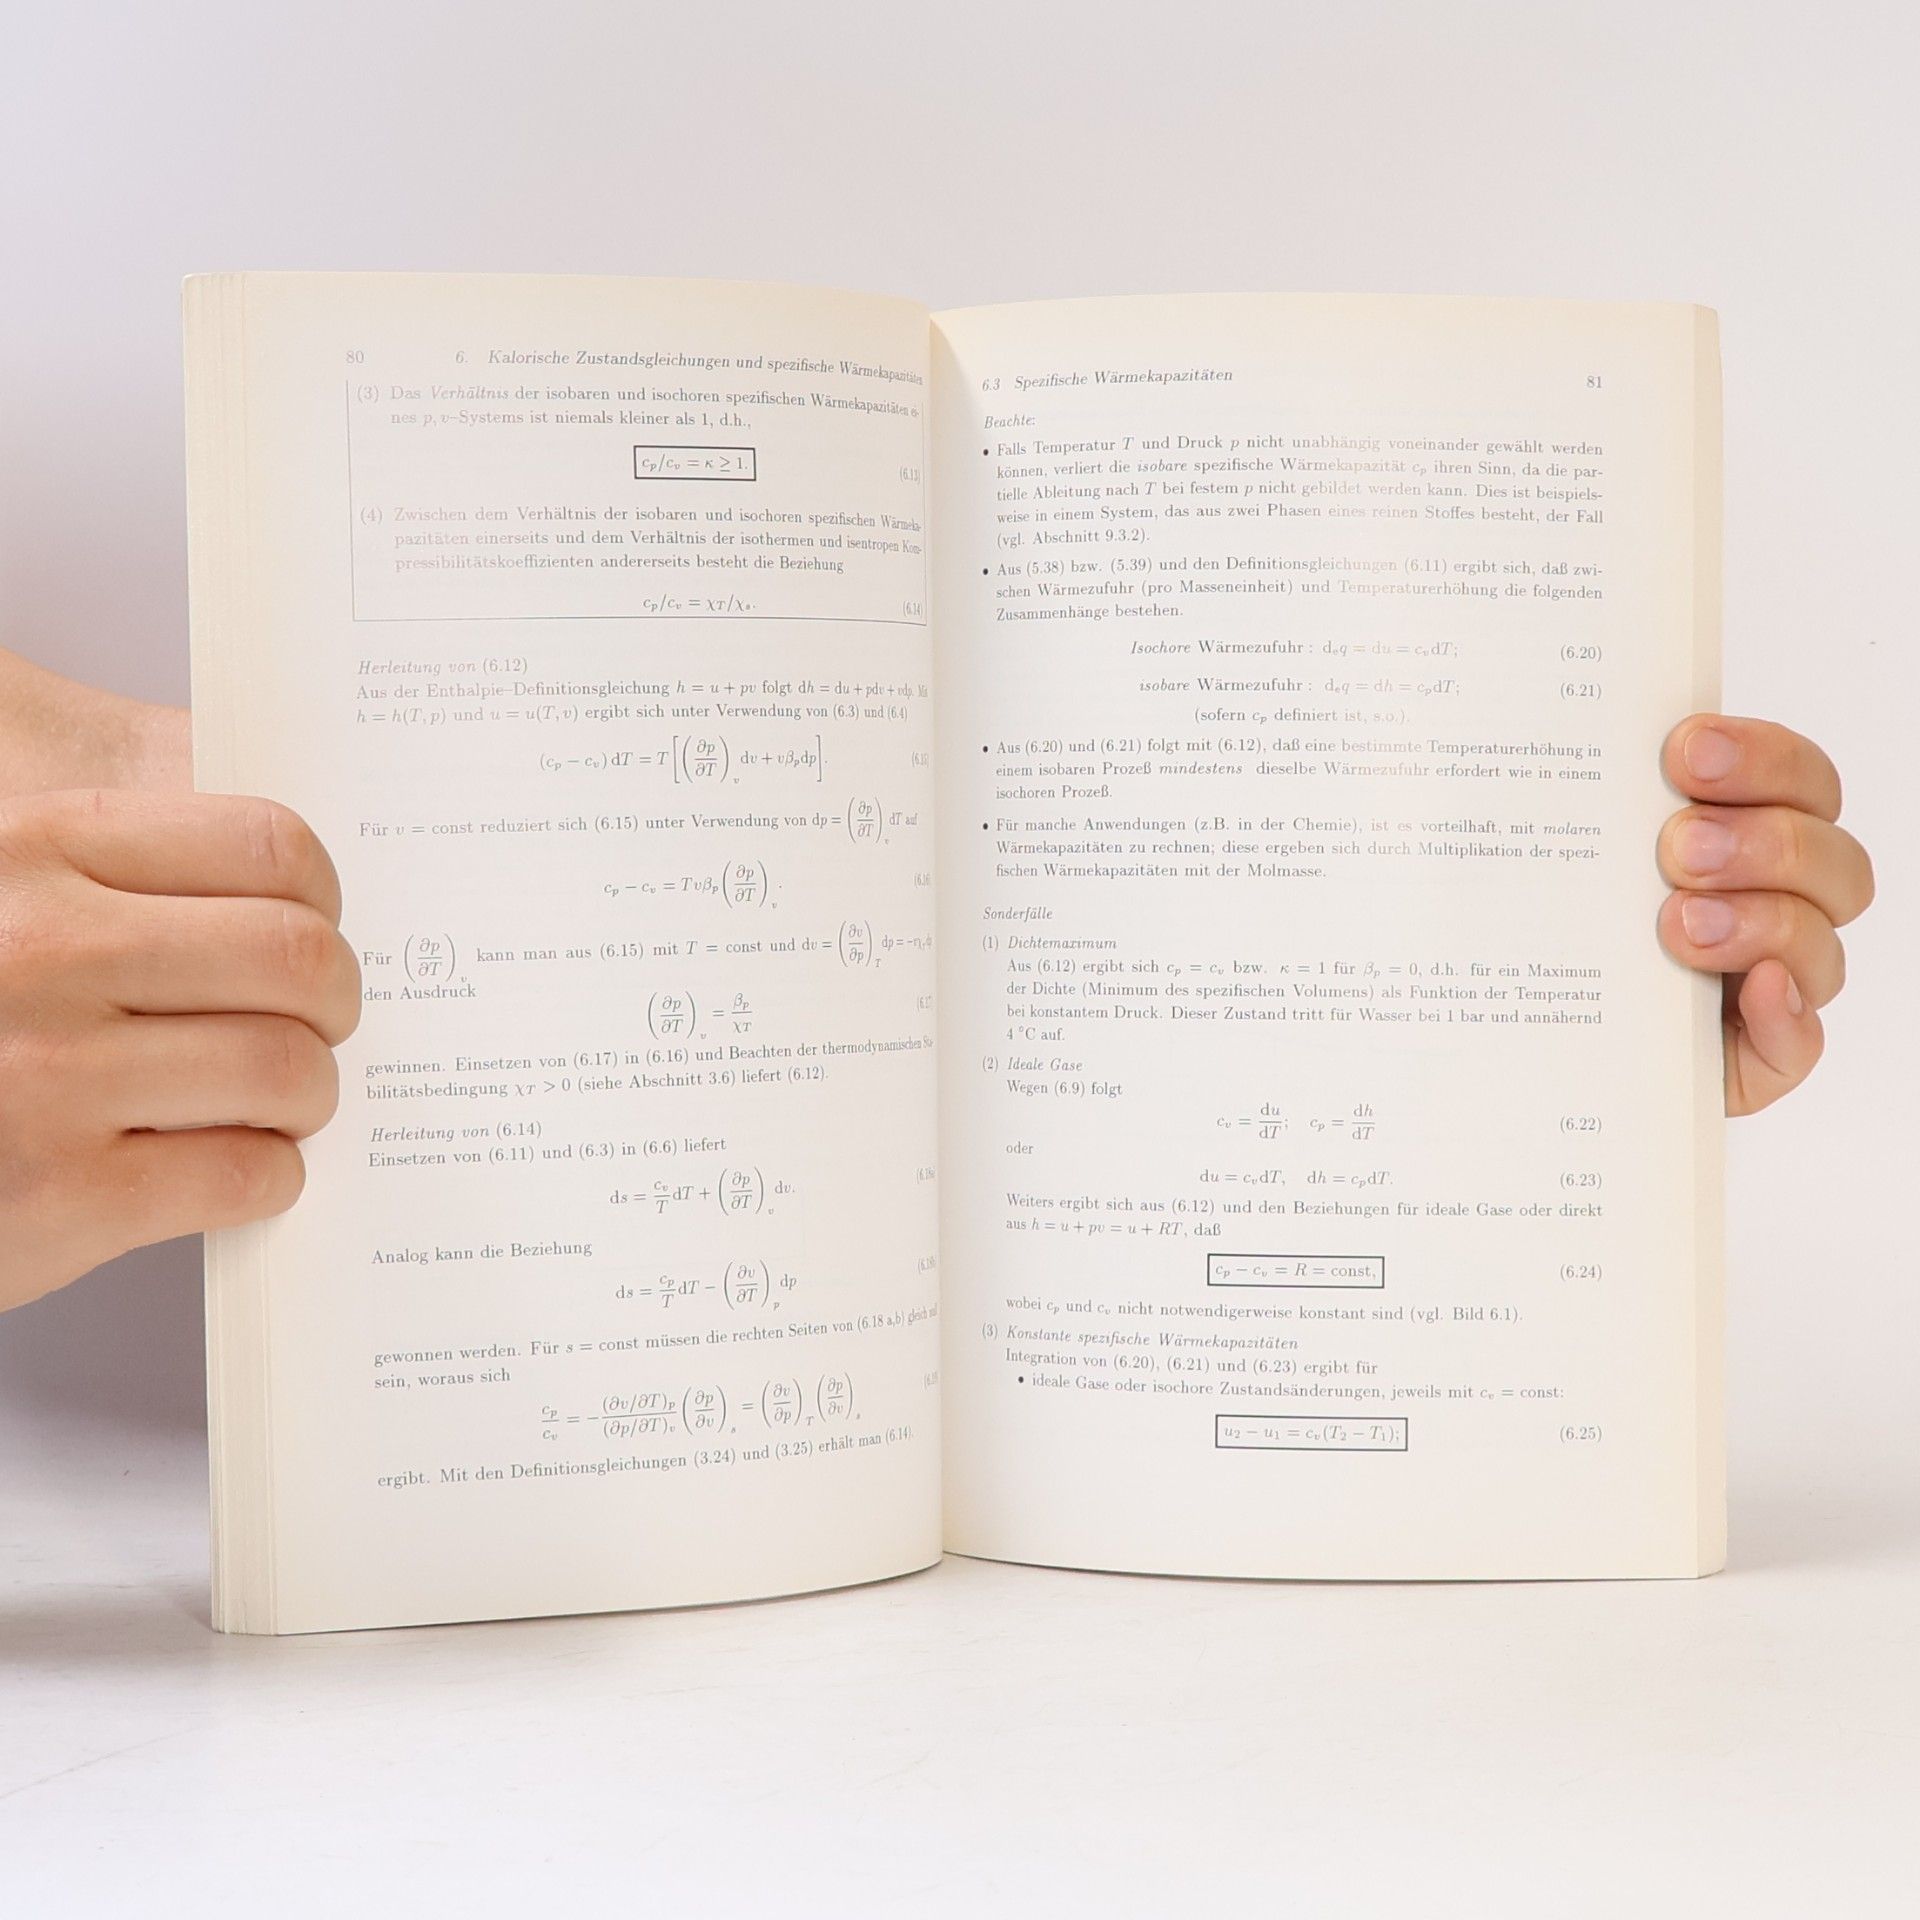 80 6. Kalorische Zustandsgleichungen und spezifische Wärmekapazitäten
(3) Das Verhältnis der isobaren und isochoren spezifischen Wärmekapazitäten ei-
nes p, v–Systems ist niemals kleiner als 1, d.h.,
c_p/c_v = κ ≥ 1. (6.13)
(4) Zwischen dem Verhältnis der isobaren und isochoren spezifischen Wärmeka-
pazitäten einerseits und dem Verhältnis der isothermen und isentropen Kom-
pressibilitätskoeffizienten andererseits besteht die Beziehung
c_p/c_v = χ_T/χ_s. (6.14)
Herleitung von (6.12)
Aus der Enthalpie–Definitionsgleichung h = u + pv folgt dh = du + pdv + vdp. Mit
h = h(T, p) und u = u(T, v) ergibt sich unter Verwendung von (6.3) und (6.4)
(c_p − c_v) dT = T [(∂p/∂T)_v dv + vβ_p dp]. (6.15)
Für v = const reduziert sich (6.15) unter Verwendung von dp = (∂p/∂T)_v dT auf
c_p − c_v = Tvβ_p (∂p/∂T)_v. (6.16)
Für (∂p/∂T)_v kann man aus (6.15) mit T = const und dv = (∂v/∂p)_T dp = −vχ_T dp
den Ausdruck
(∂p/∂T)_v = β_p/χ_T (6.17)
gewinnen. Einsetzen von (6.17) in (6.16) und Beachten der thermodynamischen Sta-
bilitätsbedingung χ_T > 0 (siehe Abschnitt 3.6) liefert (6.12).
Herleitung von (6.14)
Einsetzen von (6.11) und (6.3) in (6.6) liefert
ds = c_v/T dT + (∂p/∂T)_v dv. (6.18a)
Analog kann die Beziehung
ds = c_p/T dT − (∂v/∂T)_p dp (6.18b)
gewonnen werden. Für s = const müssen die rechten Seiten von (6.18 a,b) gleich null
sein, woraus sich
c_p/c_v = − (∂v/∂T)_p/(∂p/∂T)_v (∂p/∂v)_s = (∂v/∂p)_T (∂p/∂v)_s (6.19)
ergibt. Mit den Definitionsgleichungen (3.24) und (3.25) erhält man (6.14).
6.3 Spezifische Wärmekapazitäten 81
Beachte:
• Falls Temperatur T und Druck p nicht unabhängig voneinander gewählt werden
können, verliert die isobare spezifische Wärmekapazität c_p ihren Sinn, da die par-
tielle Ableitung nach T bei festem p nicht gebildet werden kann. Dies ist beispiels-
weise in einem System, das aus zwei Phasen eines reinen Stoffes besteht, der Fall
(vgl. Abschnitt 9.3.2).
• Aus (5.38) bzw. (5.39) und den Definitionsgleichungen (6.11) ergibt sich, daß zwi-
schen Wärmezufuhr (pro Masseneinheit) und Temperaturerhöhung die folgenden
Zusammenhänge bestehen.
Isochore Wärmezufuhr : d_e q = du = c_v dT; (6.20)
isobare Wärmezufuhr : d_e q = dh = c_p dT; (6.21)
(sofern c_p definiert ist, s.o.).
• Aus (6.20) und (6.21) folgt mit (6.12), daß eine bestimmte Temperaturerhöhung in
einem isobaren Prozeß mindestens dieselbe Wärmezufuhr erfordert wie in einem
isochoren Prozeß.
• Für manche Anwendungen (z.B. in der Chemie), ist es vorteilhaft, mit molaren
Wärmekapazitäten zu rechnen; diese ergeben sich durch Multiplikation der spezi-
fischen Wärmekapazitäten mit der Molmasse.
Sonderfälle
(1) Dichtemaximum
Aus (6.12) ergibt sich c_p = c_v bzw. κ = 1 für β_p = 0, d.h. für ein Maximum
der Dichte (Minimum des spezifischen Volumens) als Funktion der Temperatur
bei konstantem Druck. Dieser Zustand tritt für Wasser bei 1 bar und annähernd
4 °C auf.
(2) Ideale Gase
Wegen (6.9) folgt
c_v = du/dT; c_p = dh/dT (6.22)
oder
du = c_v dT, dh = c_p dT. (6.23)
Weiters ergibt sich aus (6.12) und den Beziehungen für ideale Gase oder direkt
aus h = u + pv = u + RT, daß
c_p − c_v = R = const, (6.24)
wobei c_p und c_v nicht notwendigerweise konstant sind (vgl. Bild 6.1).
(3) Konstante spezifische Wärmekapazitäten
Integration von (6.20), (6.21) und (6.23) ergibt für
• ideale Gase oder isochore Zustandsänderungen, jeweils mit c_v = const:
u_2 − u_1 = c_v(T_2 − T_1); (6.25)